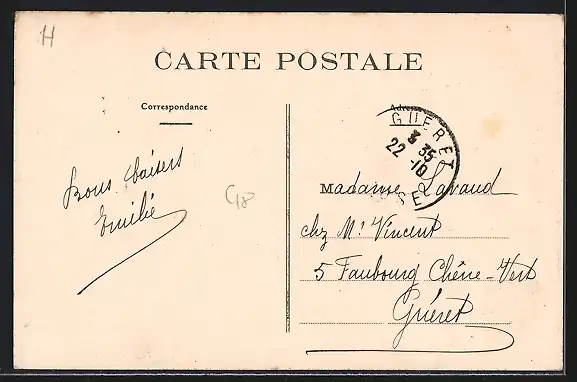 H
CARTE POSTALE
Correspondance
Adresse
GUERET
* 35
22-10
Bons baisers
Emilie
Madame Lavaud
chez Mr Vincent
5 Faubourg Chêne-Vert
Guéret